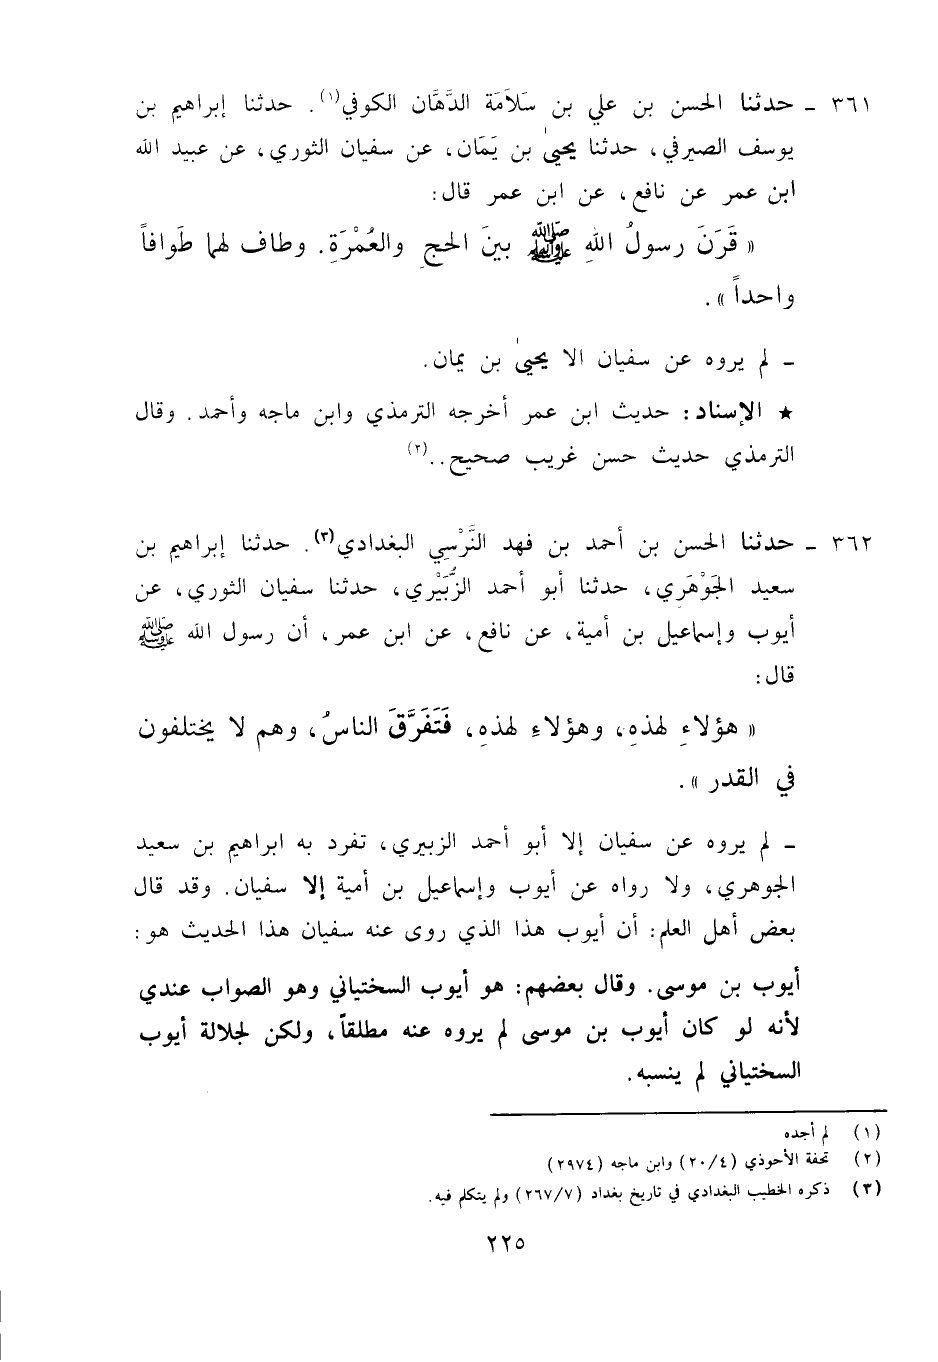 ٣٦١ ـ حدثنا الحسن بن علي بن سَلاَمَة الدَّهَّان الكوفي(١). حدثنا إبراهيم بن
يوسف الصيرفي، حدثنا يحيىٰ بن يَمَان، عن سفيان الثوري، عن عبيد الله
ابن عمر عن نافع، عن ابن عمر قال:
« قَرَنَ رسولُ اللهِ ﷺ بينَ الحجِ والعُمْرَةِ. وطاف لهما طَوافاً
واحداً ».
ـ لم يروه عن سفيان الا يحيىٰ بن يمان.
★ الإسناد: حديث ابن عمر أخرجه الترمذي وابن ماجه وأحمد. وقال
الترمذي حديث حسن غريب صحيح..(٢)
٣٦٢ ـ حدثنا الحسن بن أحمد بن فهد النَّرْسِي البغدادي(٣). حدثنا إبراهيم بن
سعيد الجَوْهَري، حدثنا أبو أحمد الزُّبَيْري، حدثنا سفيان الثوري، عن
أيوب وإسماعيل بن أمية، عن نافع، عن ابن عمر، أن رسول الله ﷺ
قال:
« هؤلاءِ لهذهِ، وهؤلاءِ لهذهِ، فَتَفَرَّقَ الناسُ، وهم لا يختلفون
في القدر ».
ـ لم يروه عن سفيان إلا أبو أحمد الزبيري، تفرد به ابراهيم بن سعيد
الجوهري، ولا رواه عن أيوب وإسماعيل بن أمية إلا سفيان. وقد قال
بعض أهل العلم: أن أيوب هذا الذي روى عنه سفيان هذا الحديث هو:
أيوب بن موسى. وقال بعضهم: هو أيوب السختياني وهو الصواب عندي
لأنه لو كان أيوب بن موسى لم يروه عنه مطلقاً، ولكن لجلالة أيوب
السختياني لم ينسبه.
(١) لم أجده
(٢) تحفة الأحوذي (٢٠/٤) وابن ماجه (٢٩٧٤)
(٣) ذكره الخطيب البغدادي في تاريخ بغداد (٢٦٧/٧) ولم يتكلم فيه.
٢٢٥